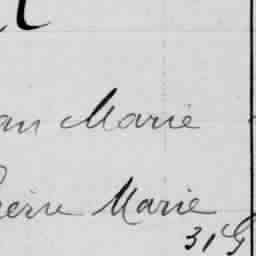 an Marie
ierre Marie
31 G